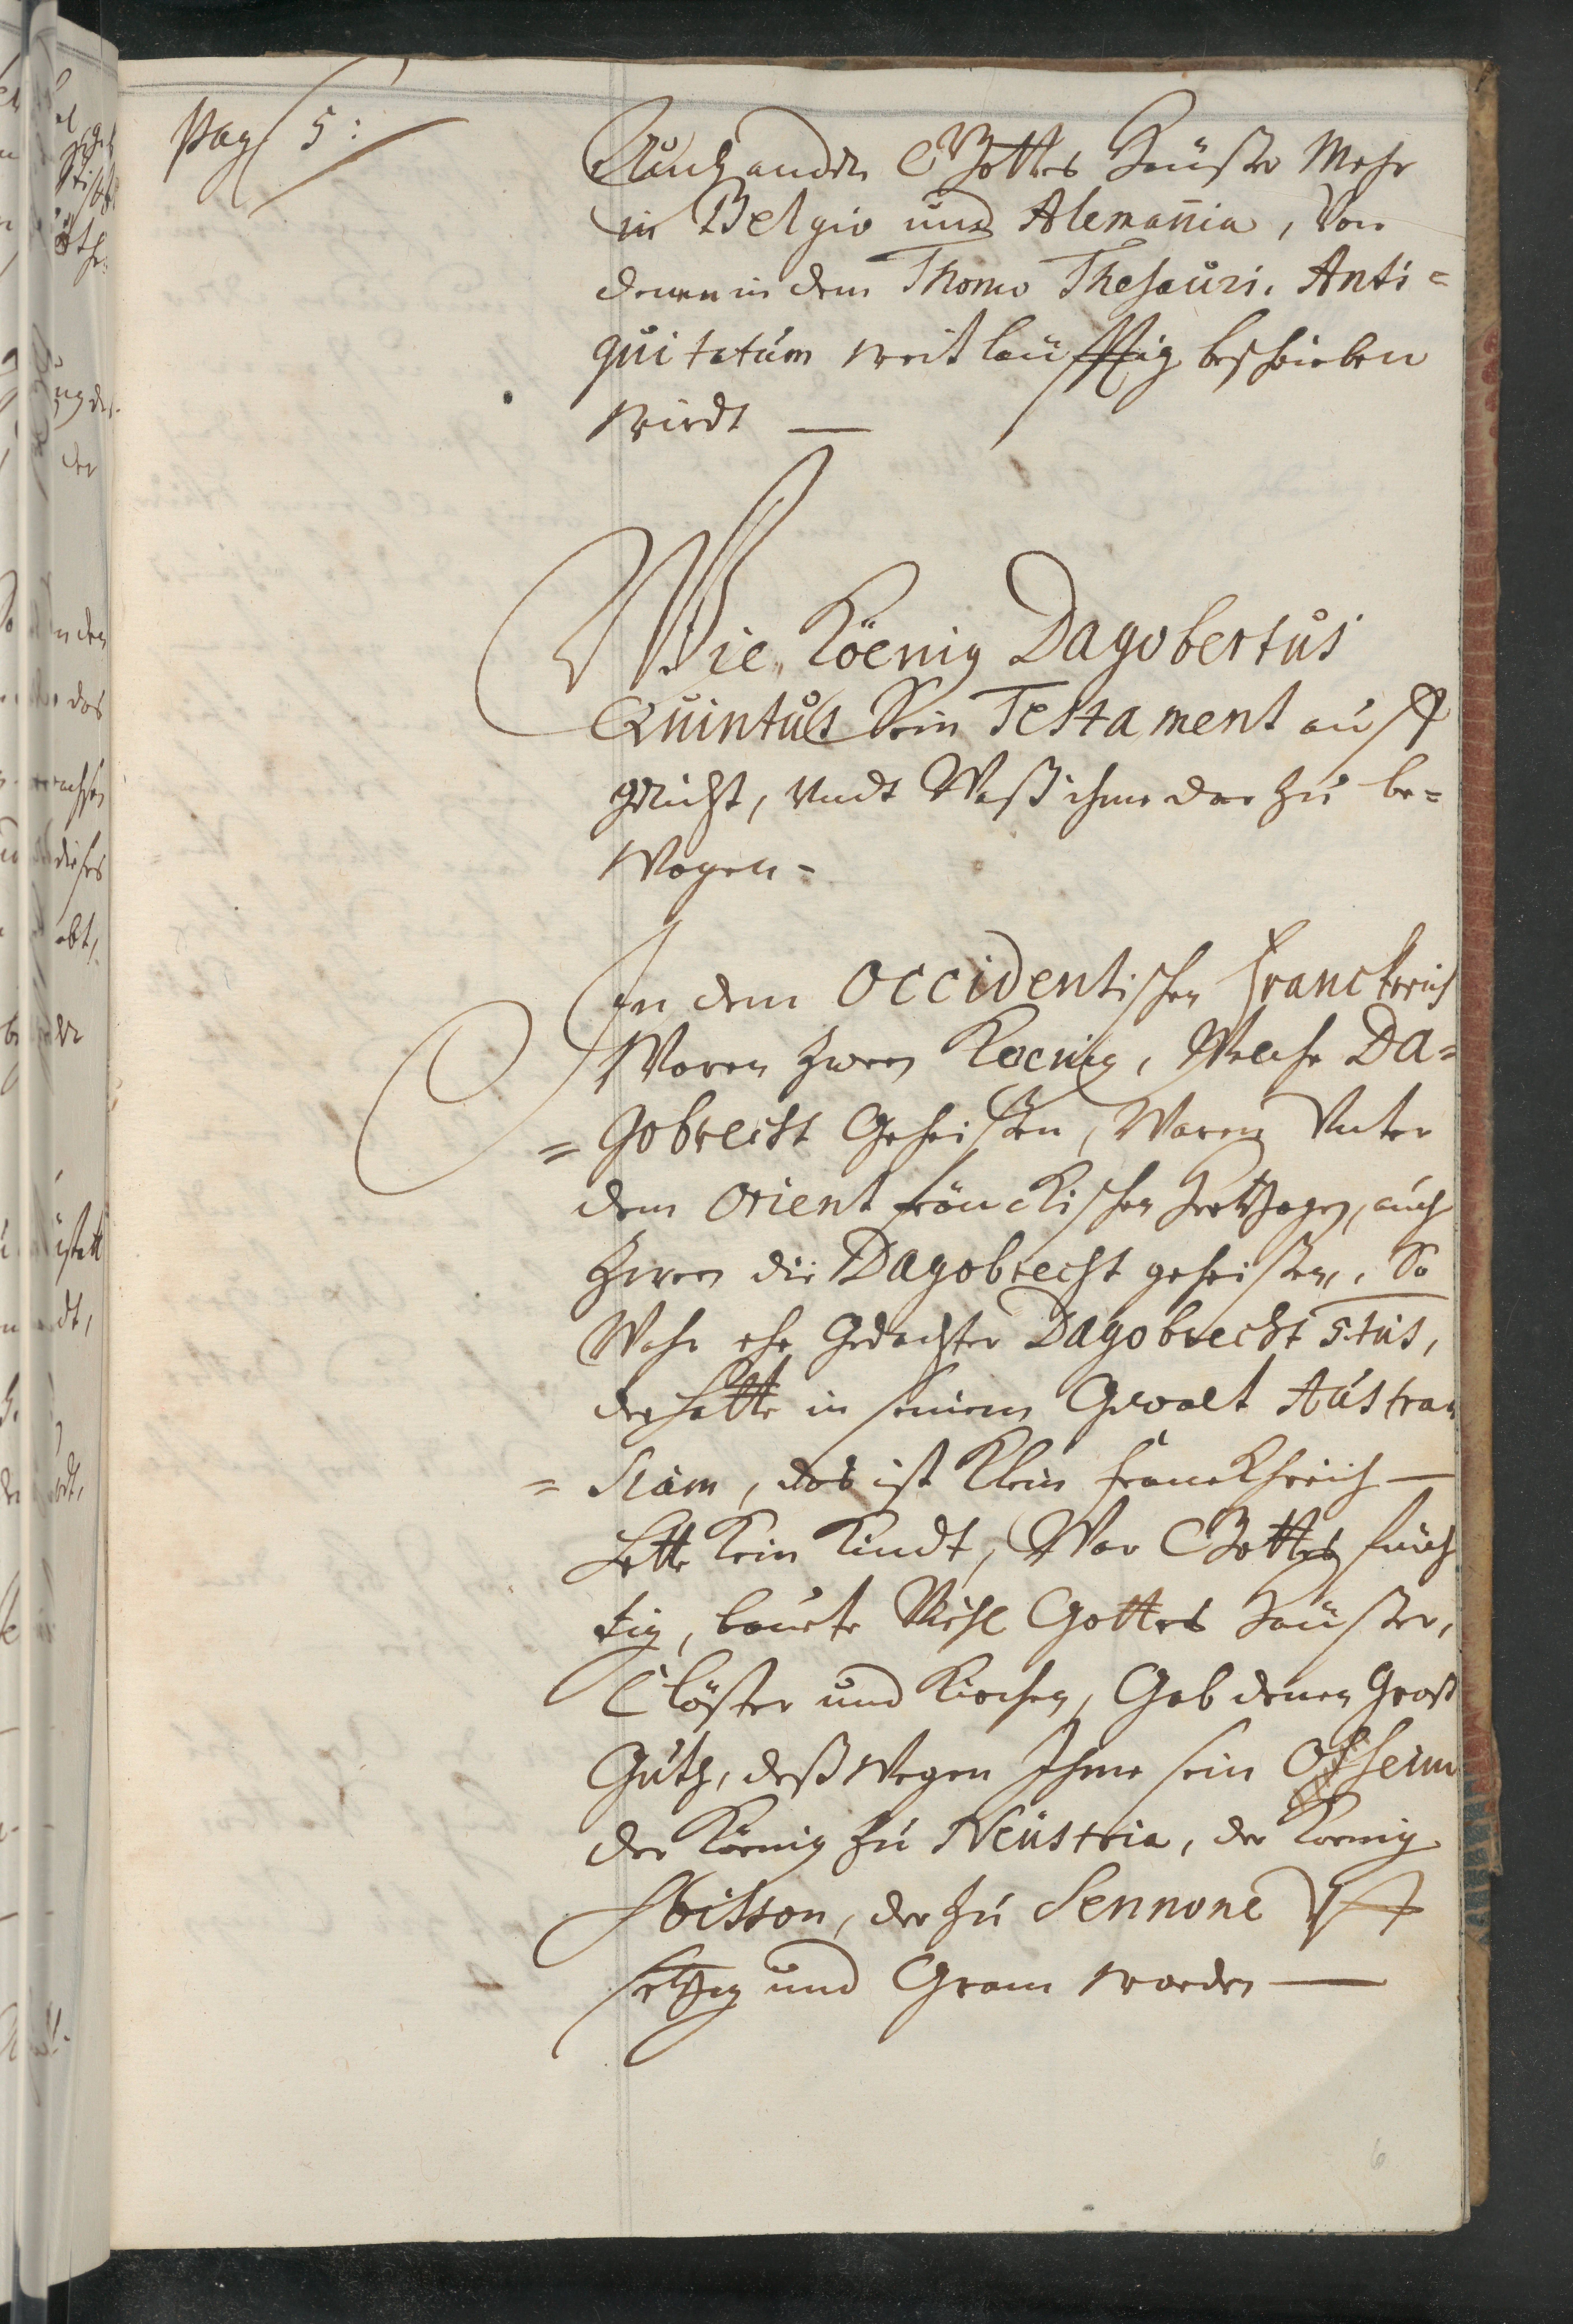 Pag 5:
Auch andere Gottes Heüßer Mehr
in Belgio und Alemannia, Von
denen in dem Thomo Thesauri, Anti=
quitatum weitleüfftig beschrieben
wirdt —
Wie Köenig Dagobertus
Quintus Sein Testament auff
gericht, undt Waß ihme dar zu be=
wogen =
In dem Occidentischen Franckreich
Waren zween Koenig, Welche Da=
=Gobrecht Geheißen, Waren Unter
dem Orient fränckischen Hertzogen, auch
zween die Dagobrecht geheißen, So
Wahr ehe Gedachter Dagobrecht 5.tus,
der hatte in seinem Gewalt Austra
=siam, das ist Klein Franckhreich —
hette kein Kindt, War Gottes fürch
tig, baute Viehl Gottes Heüßer,
Clöster und Kirchen, Gab denen Groß
Guth, deßwegen Ihme sein Oheim
der König zu Neustria, der Koenig
Soisson, der zu Sennone Uff
setzig und Gram worden —
6